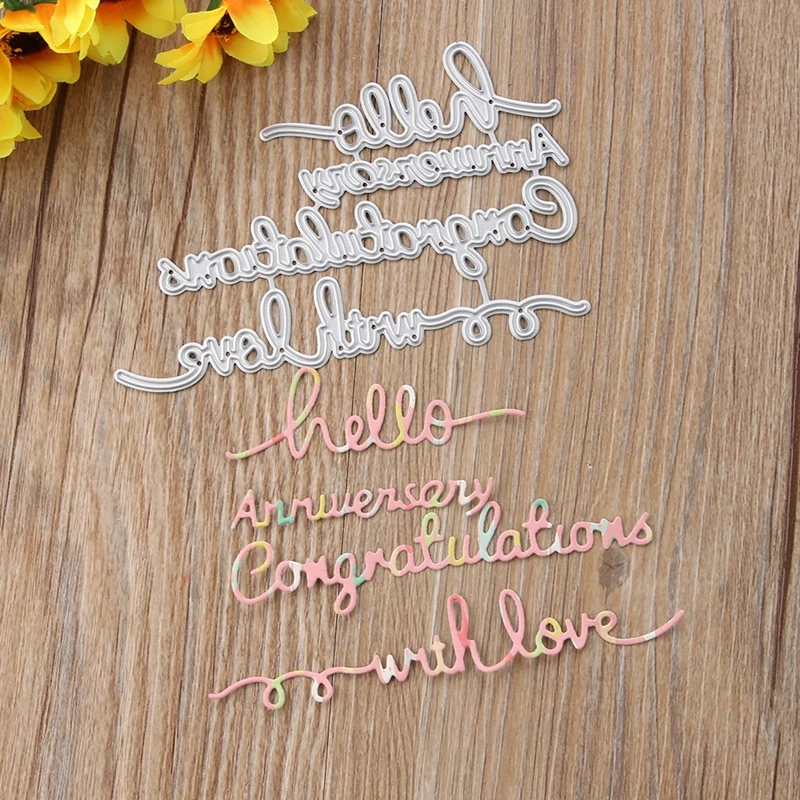 hello
Anniversary
Congratulations
with love
hello
Anniversary
Congratulations
with love